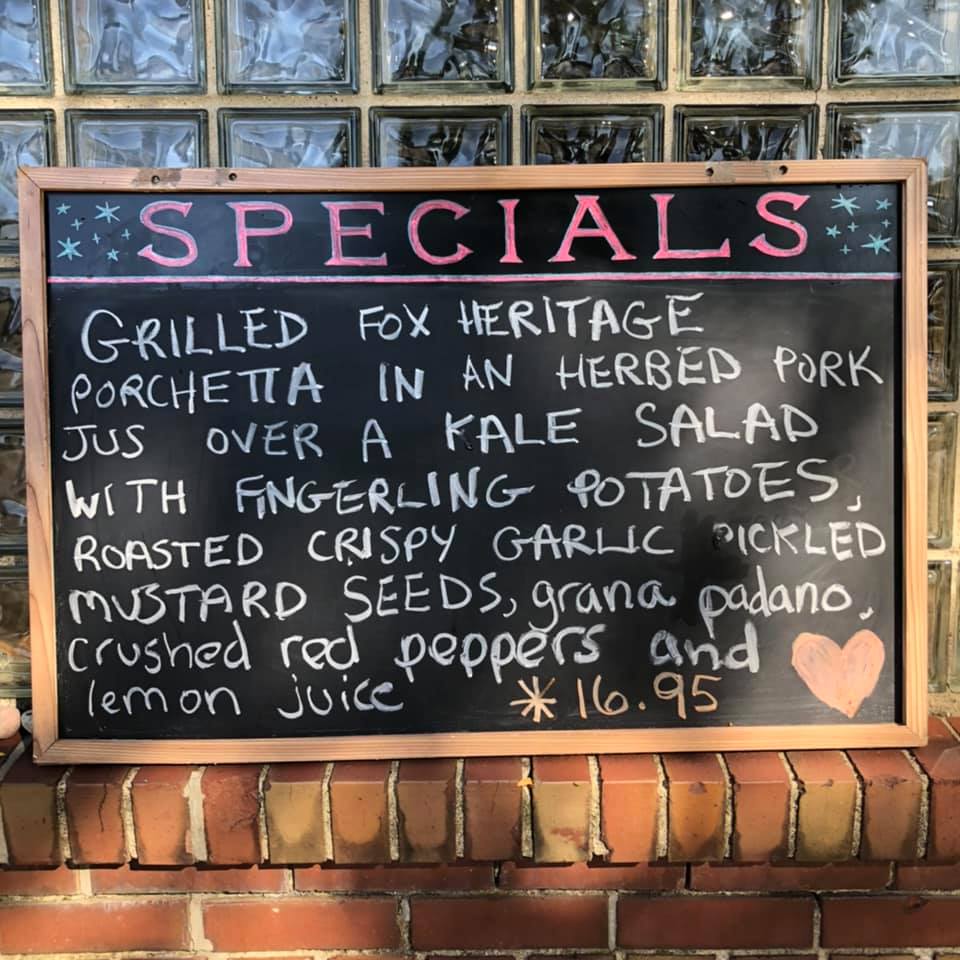 SPECIALS
GRILLED FOX HERITAGE
PORCHETTA IN AN HERBED PORK
JUS OVER A KALE SALAD
WITH FINGERLING POTATOES,
ROASTED CRISPY GARLIC PICKLED
MUSTARD SEEDS, grana padano,
crushed red peppers and
lemon juice *16.95